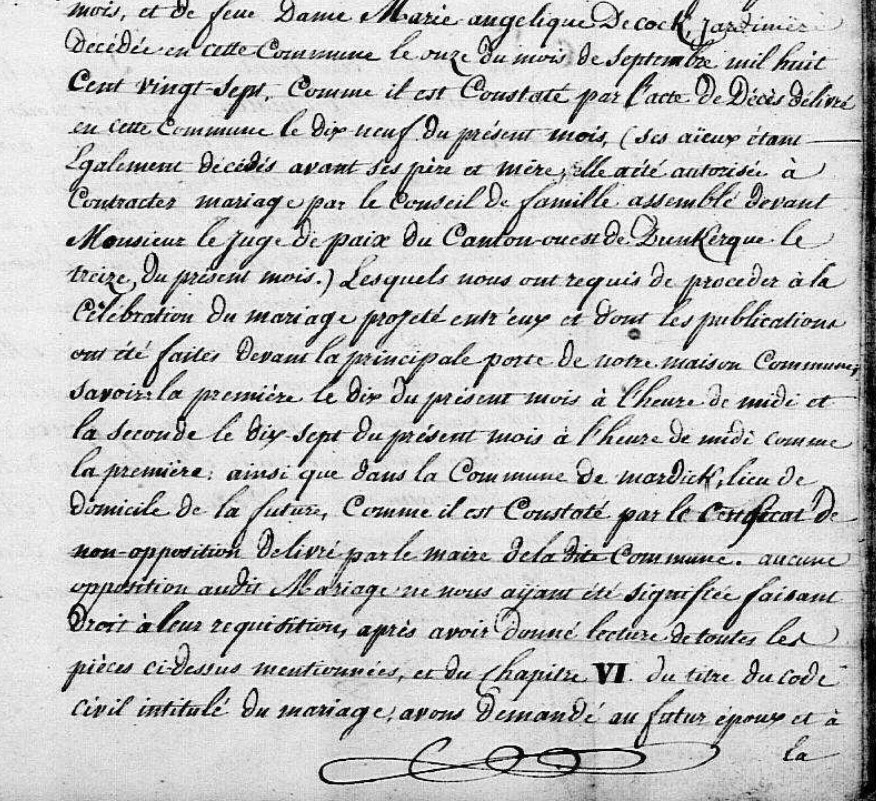 mois, et de feue Dame Marie angelique Decock, Jardinière
décédée en cette Commune le onze du mois de Septembre mil huit
Cent vingt-sept, Comme il est Constaté par l'acte de Décès délivré
en cette Commune le dix neuf du présent mois, (ses aïeux étant
Egalement décédés avant ses père et mère, elle a été autorisée à
Contracter mariage par le Conseil de famille assemblé devant
Monsieur le Juge de paix du Canton-ouest de Dunkerque le
treize, du présent mois.) Lesquels nous ont requis de proceder à la
Célébration du mariage projeté entr'eux et dont les publications
ont été faites devant la principale porte de notre maison Commune,
Savoir: la première le dix du présent mois à l'heure de midi et
la seconde le dix-sept du présent mois à l'heure de midi comme
la première; ainsi que dans la Commune de mardick, lieu de
domicile de la future, Comme il est Constaté par le Certificat de
non-opposition délivré par le maire de la dite Commune. aucune
opposition audit Mariage ne nous aÿant été signifiée faisant
Droit à leur requisition, après avoir donné lecture de toutes les
pièces ci-dessus mentionnées, et du Chapitre VI. du titre du code
Civil intitulé du mariage, avons demandé au futur époux et à
la